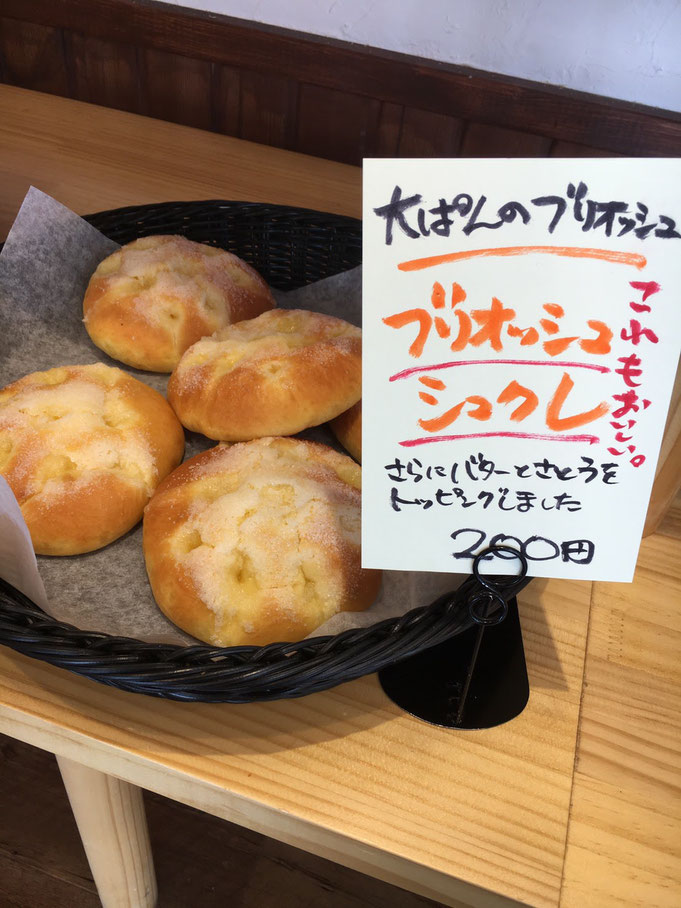 大ぱんのブリオッシュ
ブリオッシュ
シュクレ
これもおいしい。
さらにバターとさとうを
トッピングしました
200円